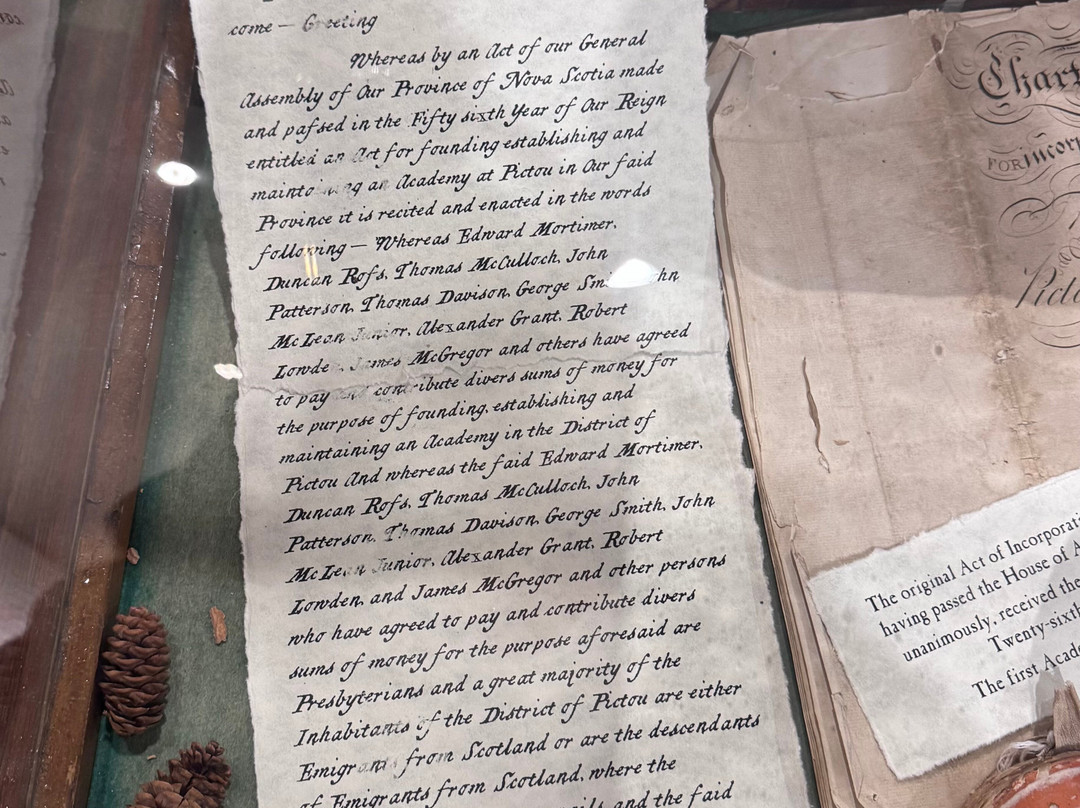 come — Greeting
Whereas by an Act of our General
Assembly of Our Province of Nova Scotia made
and pafsed in the Fifty sixth Year of Our Reign
entitled an Act for founding establishing and
maintaining an Academy at Pictou in Our faid
Province it is recited and enacted in the words
following — Whereas Edward Mortimer,
Duncan Rofs, Thomas McCulloch, John
Patterson, Thomas Davison, George Smith, John
McLean Junior, Alexander Grant, Robert
Lowden, James McGregor and others have agreed
to pay and contribute divers sums of money for
the purpose of founding, establishing and
maintaining an Academy in the District of
Pictou And whereas the faid Edward Mortimer,
Duncan Rofs, Thomas McCulloch, John
Patterson, Thomas Davison, George Smith, John
McLean Junior, Alexander Grant, Robert
Lowden, and James McGregor and other persons
who have agreed to pay and contribute divers
sums of money for the purpose aforesaid are
Presbyterians and a great majority of the
Inhabitants of the District of Pictou are either
Emigrants from Scotland or are the descendants
of Emigrants from Scotland, where the
and the faid
Chart
FOR incorp
Picto
The original Act of Incorporati
having passed the House of A
unanimously, received the
Twenty-sixth
The first Acade